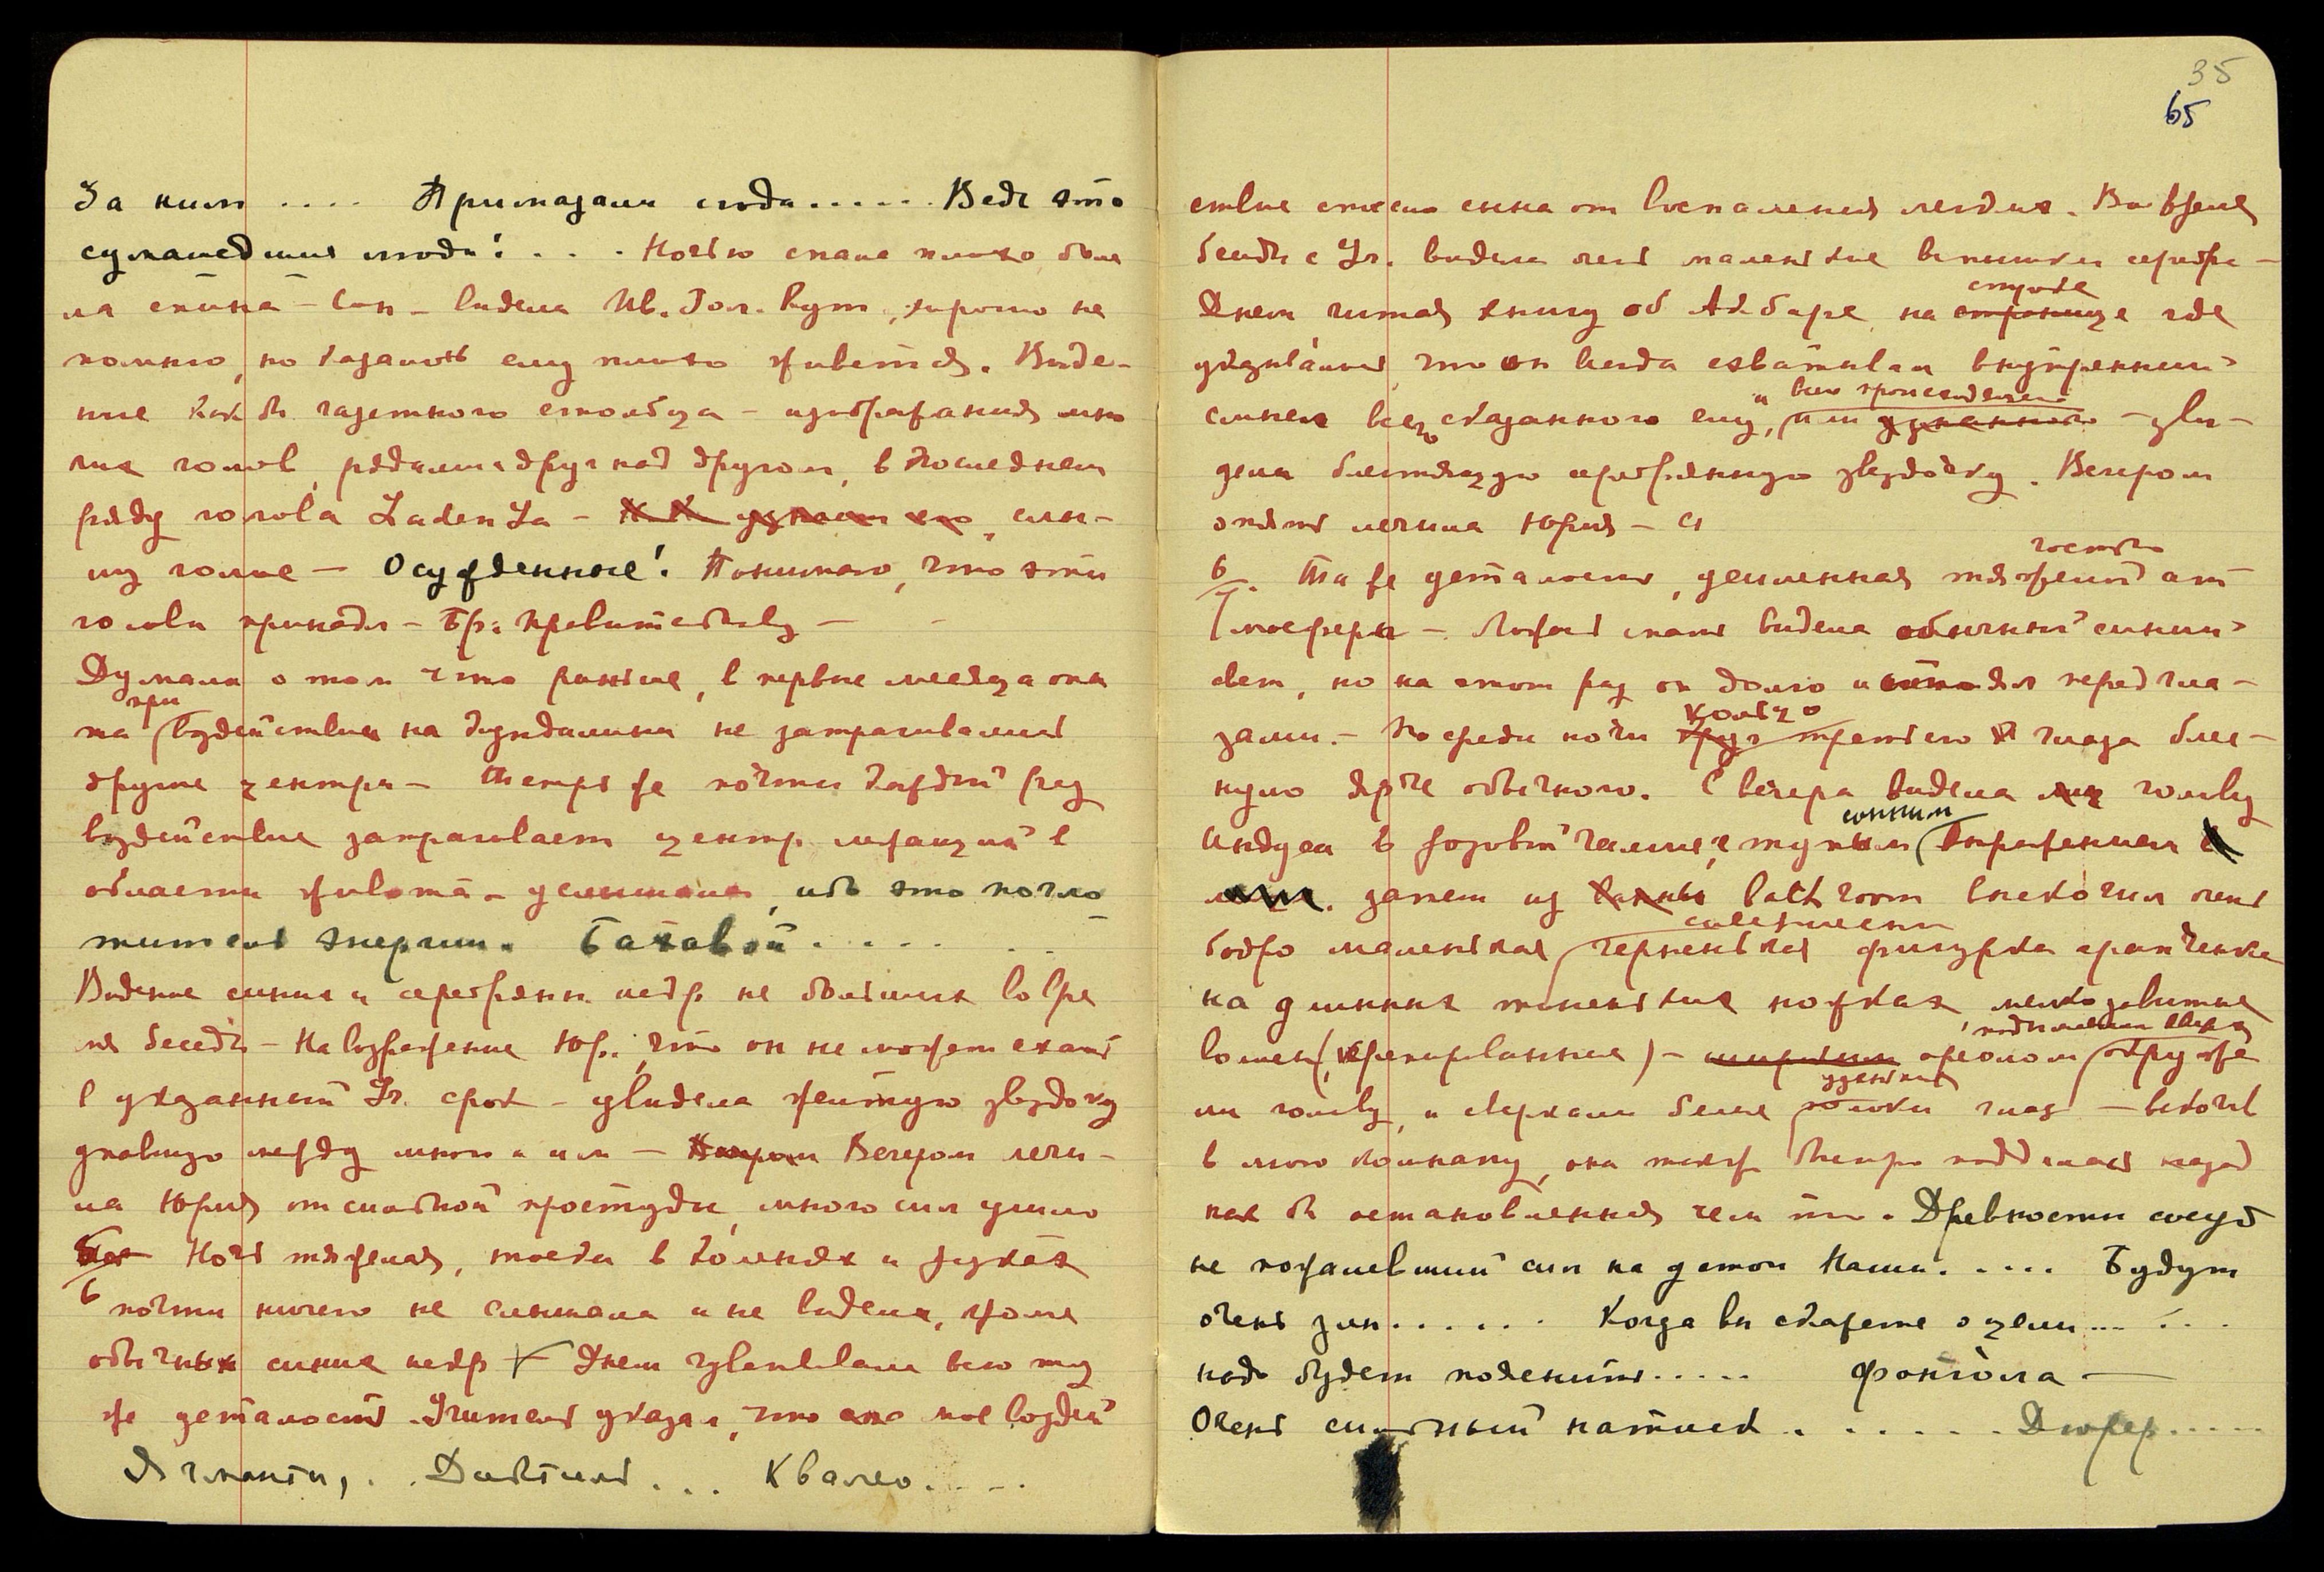 За ним .... Примазали сюда...... Ведь это
сумасшедшие люди! . . . Ночью спала плохо, боле
ла спина – Сон – видела Ив. Гол. Кут., хорошо не
помню, но казалось ему плохо живется. Виде-
ние как бы газетного столбца – изображения мно
гих голов, рядами друг над другом, в последнем
ряду голова Laden La – слы-
шу голос – Осужденные! Понимаю, что эти
головы принадл – Бр. Правительству –
Думала о том что раньше, в первые месяца она
ма при воздействии на кундалини не затрагивались
другие центры – Теперь же почти каждый раз
воздействие затрагивает центр в
области живота – услышала, ибо это погло
титель энергии. Батавой . . . .
Видение синих и серебрян. искр. не больших во вре
мя беседы – На возражение Юр., что он не может ехать
в указанный Уч. срок – увидела желтую звездочку
упавшую между мною и им – Вечером лечи-
ла Юрия от сильной простуды, много сил ушло
Ночь тяжелая, тоска в коленях и руках
6 почти ничего не слышала и не видела, кроме
обычных синих искр – Днем чувствовала всю ту
же усталость. Учитель указал, что мое воздей
Дальтиль ... Квалео....
35
65
ствие спасло сына от воспаления легких. Во время
беседы с Уч. видела очень маленькие вспышки серебра –
Днем читая книгу об Акбаре, на строке где
указывалось, что он всегда схватывал внутренний
смысл всего сказанного ему, и всего происходящего – уви-
дела блестящую серебрянную звездочку. Вечером
опять лечила Юрия – сл
6/7. Та же усталость, усиленная тяжестью ат
мосферы –. Ложась спать видела обычный синий
свет, но на этот раз он долго стоял перед гла-
зами. – Посреди ночи кольцо третьего глаза блес-
нуло ярче обычного. С вечера видела голову
индуса в розовой чалме, с тупым сонным выражением
затем из bath room выскочила очень
бодро маленькая совершенно черненькая фигурка арапченка
на длинных тоненьких ножках, мелкозавитые
волосы – ореолом поднятым вверх окружа
ли голову, и сверкали белые узенькие глаз – вскочив
в мою комнату, она также быстро подалась назад
как бы остановленная чем то. Древности сосуд
не пожалевший сил на устои Наши. .... Будут
очень злы. . . . . . Когда вы скажете о цели... ...
надо будет пояснить..... Фонтола –
Очень сильный натиск . . . . . . Дюрер.....